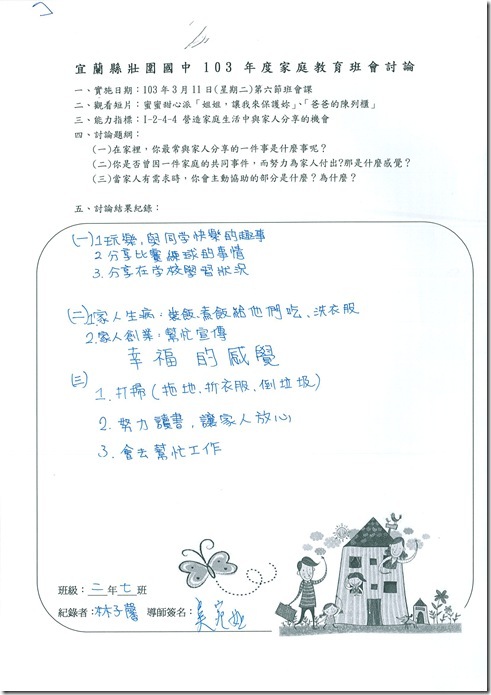 宜蘭縣壯圍國中 103 年度家庭教育班會討論
一、實施日期：103 年 3 月 11 日(星期二)第六節班會課
二、觀看短片：蜜蜜甜心派「姐姐，讓我來保護妳」、「爸爸的陳列櫃」
三、能力指標：1-2-4-4 營造家庭生活中與家人分享的機會
四、討論題綱：
(一)在家裡，你最常與家人分享的一件事是什麼事呢？
(二)你是否曾因一件家庭的共同事件，而努力為家人付出?那是什麼感覺？
(三)當家人有需求時，你會主動協助的部分是什麼？為什麼？
五、討論結果紀錄：
(一)1.玩樂，與同学快樂的趣事
2.分享比賽練球的事情
3.分享在学校學習狀況
(二)1.家人生病：裝飯.煮飯給他們吃、洗衣服
2.家人創業：幫忙宣傳
幸福的感覺
(三)
1.打掃(拖地.折衣服.倒垃圾)
2.努力讀書，讓家人放心
3.會去幫忙工作
班級：二年七班
紀錄者：林子馨 導師簽名：